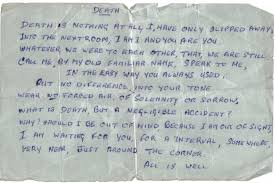 DEATH
DEATH IS NOTHING AT ALL I, HAVE ONLY SLIPPED AWAY,
INTO THE NEXT ROOM, I AM I AND YOU ARE YOU
WHATEVER WE WERE TO EACH OTHER, THAT, WE ARE STILL
CALL ME, BY MY OLD FAMILIAR NAME, SPEAK TO ME,
IN THE EASY WAY YOU ALWAYS USED
PUT NO DIFFERENCE, INTO YOUR TONE
WEAR NO FORCED AIR, OF SOLEMNITY OR SORROW,
WHAT IS DEATH, BUT A NEGLIGIBLE ACCIDENT?
WHY? SHOULD I BE OUT OF MIND BECAUSE I AM OUT OF SIGHT,
I AM WAITING FOR YOU, FOR A INTERVAL, SOMEWHERE,
VERY NEAR, JUST AROUND THE CORNER.
ALL IS WELL